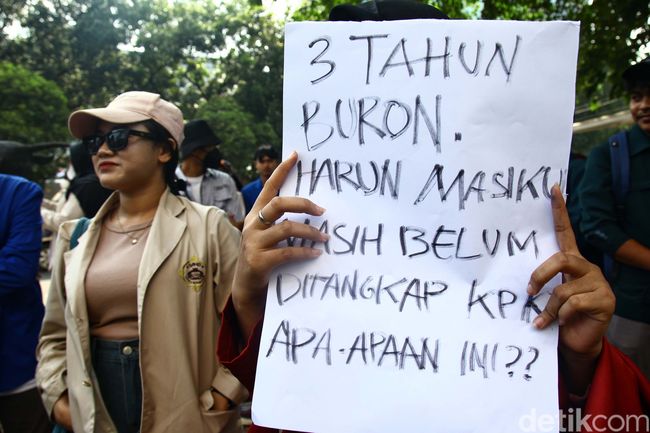 3 TAHUN
BURON.
HARUN MASIKU
MASIH BELUM
DITANGKAP KPK
APA-APAAN INI??
detikcom